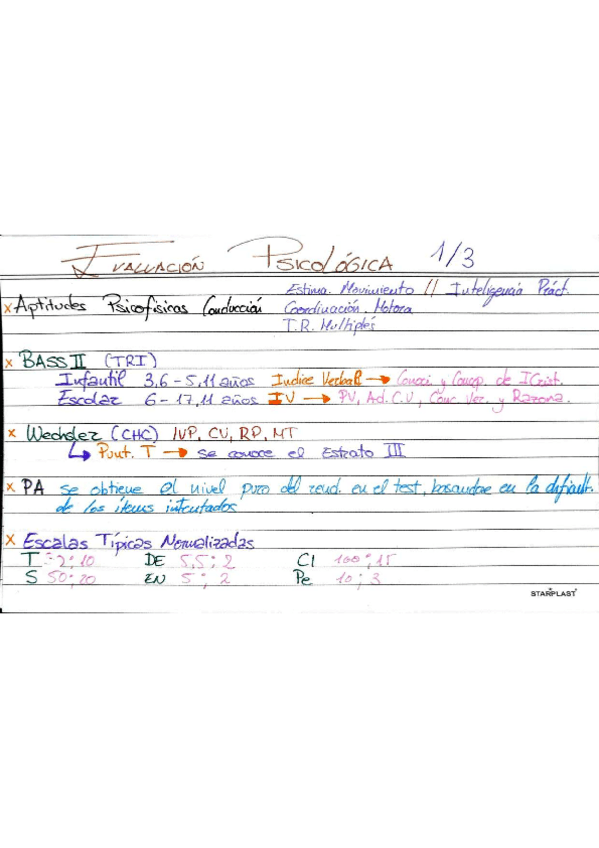 Evaluación Psicológica 1/3
Estima. Movimiento // Inteligencia Práct.
x Aptitudes Psicofísicas Conducción Coordinación Motora
T.R. Multiples
x BASS II (TRI)
Infantil 3,6 - 5,11 años Indice Verbal → Conoci. y Concep. de
Escolar 6 - 17,11 años IV → PV, Ad. C.V, Conc. Ver. y Razona.
x Wechsler (CHC) IVP, CV, RP, MT
↳ Punt. T → se conoce el Estrato III
x PA se obtiene el nivel puro del rend. en el test, basandose en la dificult.
de los ítems intentados
x Escalas Típicas Normalizadas
T 10 DE 5,5 ; 2 CI 100 ; 15
S 50 ; 20 EN 5 ; 2 Pe 10 ; 3
STARPLAST